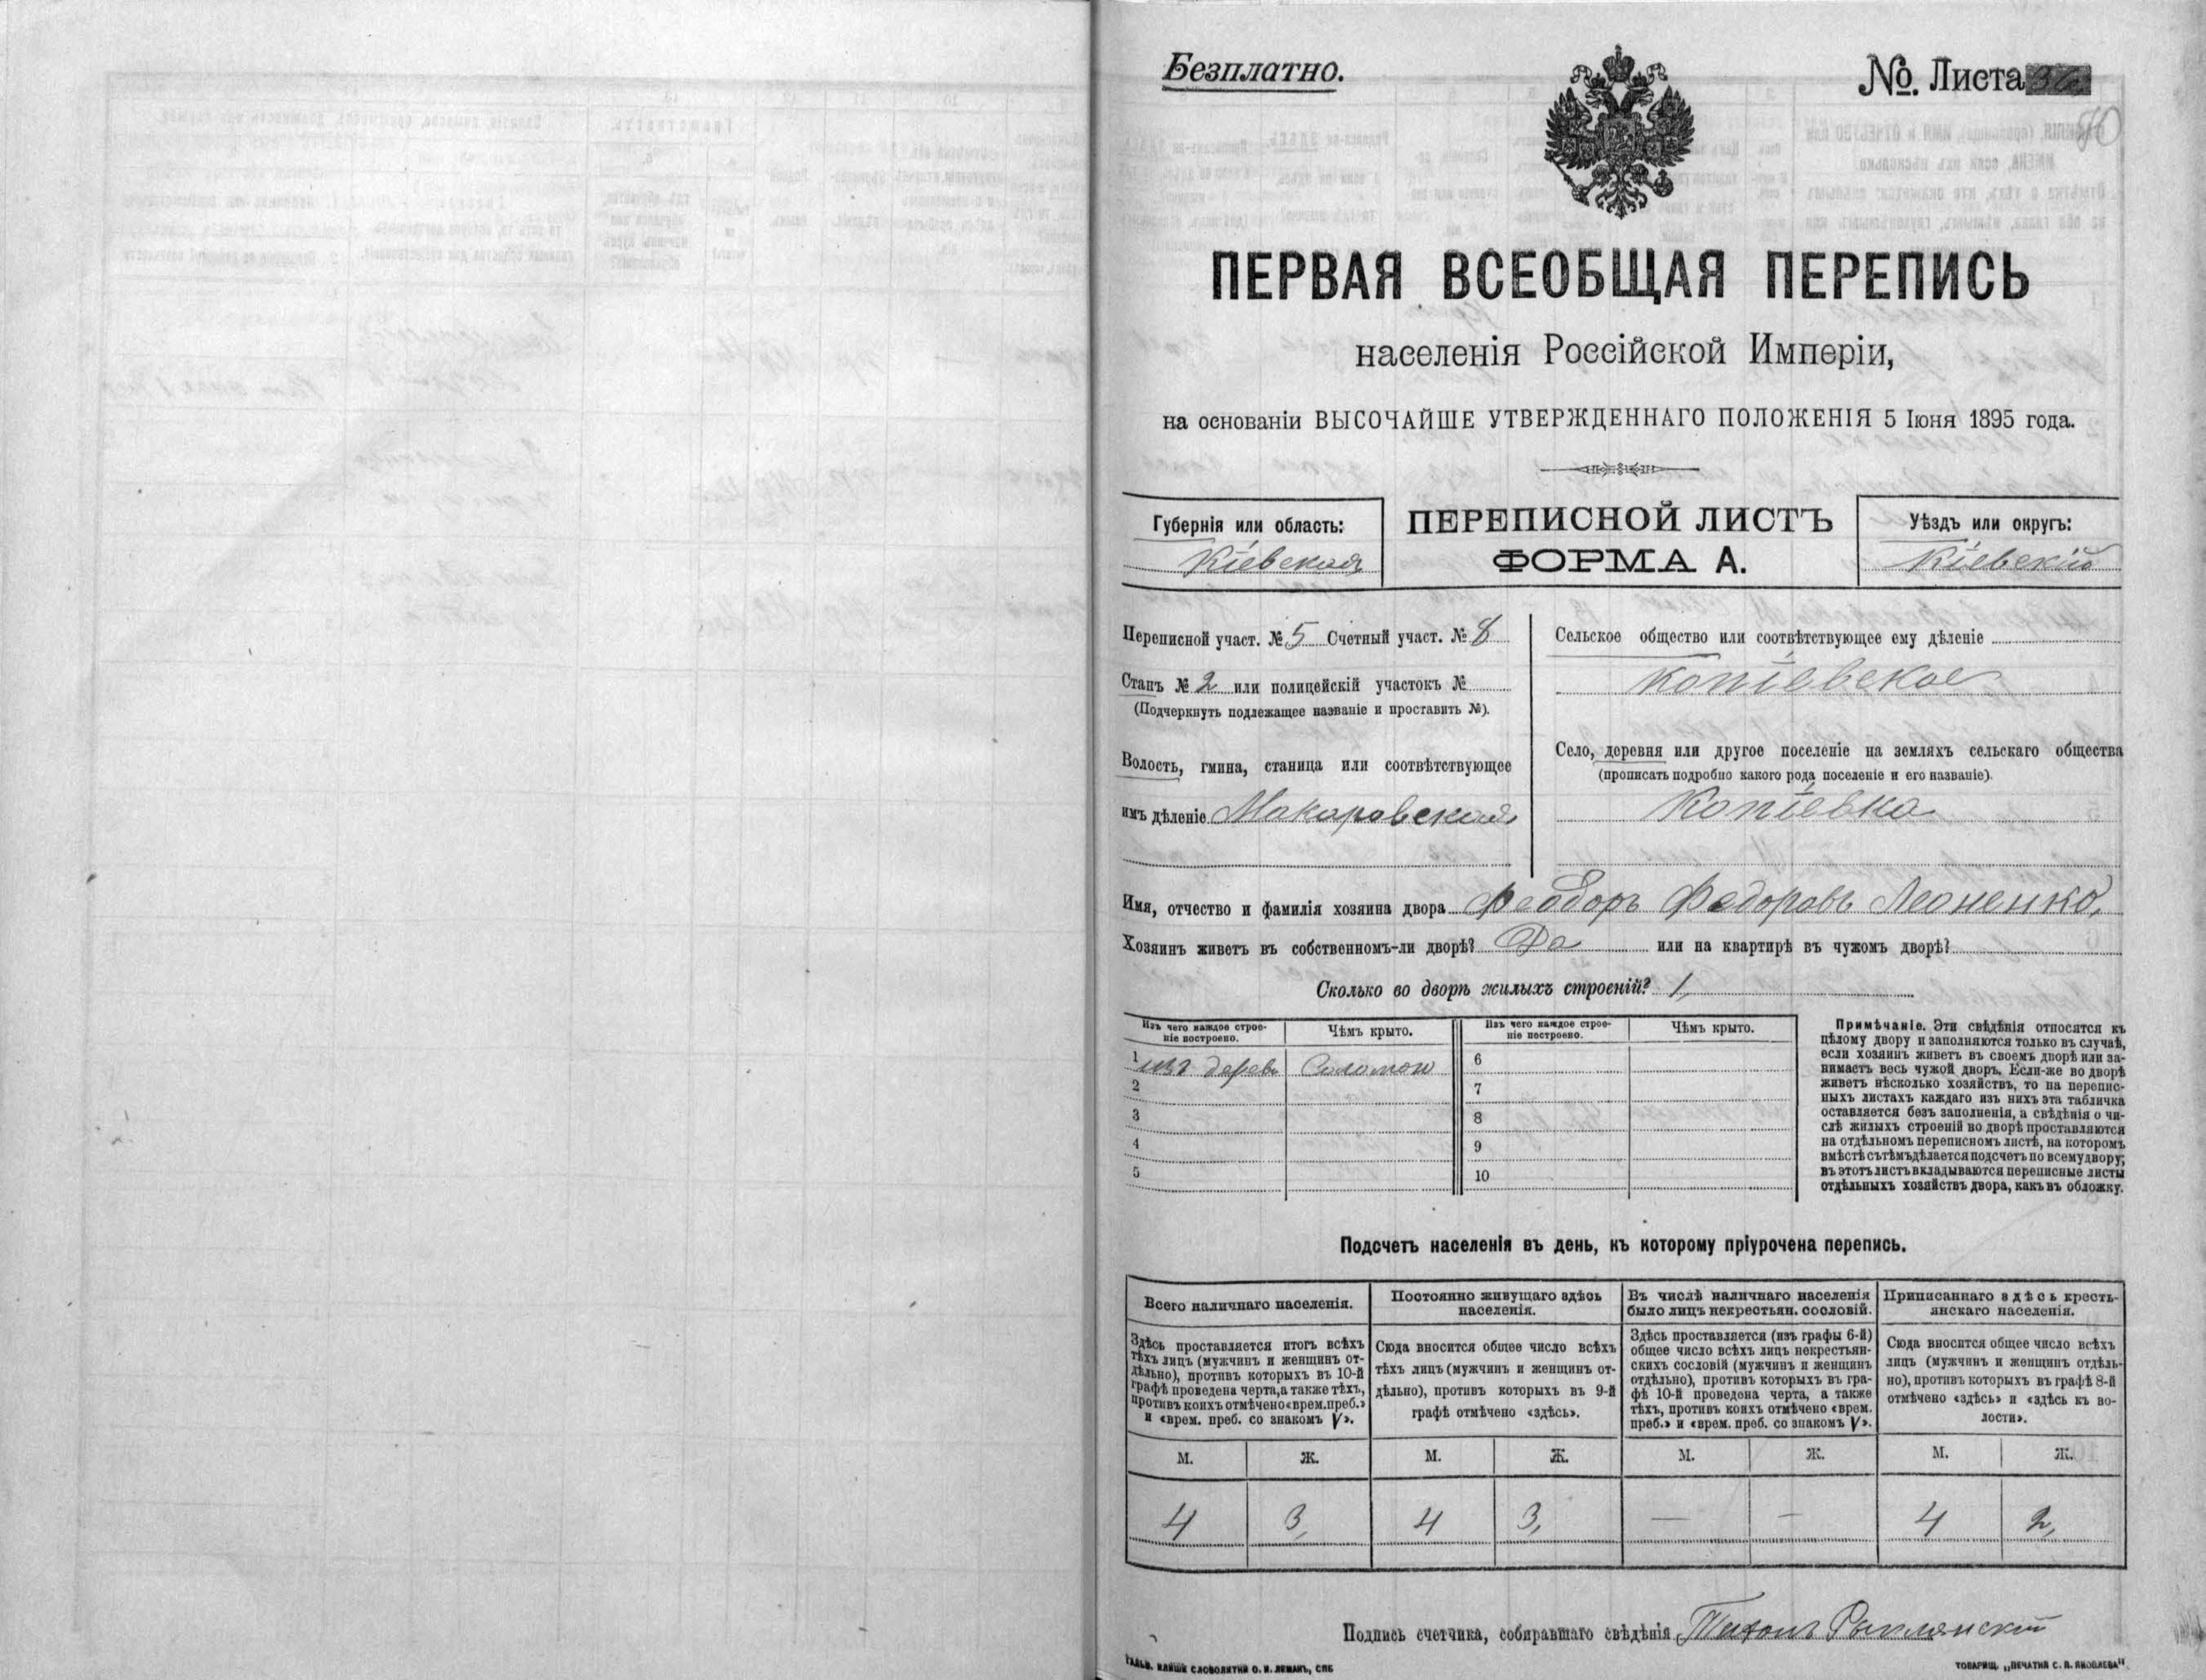 Безплатно.
№. Листа 36
80
ПЕРВАЯ ВСЕОБЩАЯ ПЕРЕПИСЬ
населенія Россійской Имперіи,
на основаніи ВЫСОЧАЙШЕ УТВЕРЖДЕННАГО ПОЛОЖЕНІЯ 5 Іюня 1895 года.
Губернія или область:
Кіевская
ПЕРЕПИСНОЙ ЛИСТЪ
ФОРМА А.
Уѣздъ или округъ:
Кіевскій
Переписной участ. № 5 Счетный участ. № 8
Станъ № 2 или полицейскій участокъ №
(Подчеркнуть подлежащее названіе и проставить №).
Волость, гмина, станица или соотвѣтствующее
имъ дѣленіе Макаровская
Сельское общество или соотвѣтствующее ему дѣленіе
Копіевское
Село, деревня или другое поселеніе на земляхъ сельскаго общества
(прописать подробно какого рода поселеніе и его названіе).
Копіевка
Имя, отчество и фамилія хозяина двора Феодоръ Федоровъ Леоненко,
Хозяинъ живетъ въ собственномъ-ли дворѣ? Да или на квартирѣ въ чужомъ дворѣ?
Сколько во дворѣ жилыхъ строеній? 1,
Изъ чего каждое строе-
ніе построено.
Чѣмъ крыто.
Изъ чего каждое строе-
ніе построено.
Чѣмъ крыто.
1 изъ дерев. Соломою
2
3
4
5
6
7
8
9
10
Примѣчаніе. Эти свѣдѣнія относятся къ
цѣлому двору и заполняются только въ случаѣ,
если хозяинъ живетъ въ своемъ дворѣ или за-
нимаетъ весь чужой дворъ. Если-же во дворѣ
живетъ нѣсколько хозяйствъ, то на перепис-
ныхъ листахъ каждаго изъ нихъ эта табличка
оставляется безъ заполненія, а свѣдѣнія о чи-
слѣ жилыхъ строеній во дворѣ проставляются
на отдѣльномъ переписномъ листѣ, на которомъ
вмѣстѣ съ тѣмъ дѣлается подсчетъ по всему двору;
въ этотъ листъ вкладываются переписные листы
отдѣльныхъ хозяйствъ двора, какъ въ обложку.
Подсчетъ населенія въ день, къ которому пріурочена перепись.
Всего наличнаго населенія.
Здѣсь проставляется итогъ всѣхъ
тѣхъ лицъ (мужчинъ и женщинъ от-
дѣльно), противъ которыхъ въ 10-й
графѣ проведена черта, а также тѣхъ,
противъ коихъ отмѣчено «врем. преб.»
и «врем. преб. со знакомъ V».
Постоянно живущаго здѣсь
населенія.
Сюда вносится общее число всѣхъ
тѣхъ лицъ (мужчинъ и женщинъ от-
дѣльно), противъ которыхъ въ 9-й
графѣ отмѣчено «здѣсь».
Въ числѣ наличнаго населенія
было лицъ некрестьян. сословій.
Здѣсь проставляется (изъ графы 6-й)
общее число всѣхъ лицъ некрестьян-
скихъ сословій (мужчинъ и женщинъ
отдѣльно), противъ которыхъ въ гра-
фѣ 10-й проведена черта, а также
тѣхъ, противъ коихъ отмѣчено «врем.
преб.» и «врем. преб. со знакомъ V».
Приписаннаго здѣсь кресть-
янскаго населенія.
Сюда вносится общее число всѣхъ
лицъ (мужчинъ и женщинъ отдѣль-
но), противъ которыхъ въ графѣ 8-й
отмѣчено «здѣсь» и «здѣсь къ во-
лости».
М. Ж. М. Ж. М. Ж. М. Ж.
4 3, 4 3, — — 4 2,
Подпись счетчика, собиравшаго свѣдѣнія Тихонъ
СЛОВОЛИТНИ О. И. ЛЕМАНЪ, СПБ
ТОВАРИЩ. „ПЕЧАТНЯ С. П. ЯКОВЛЕВА"